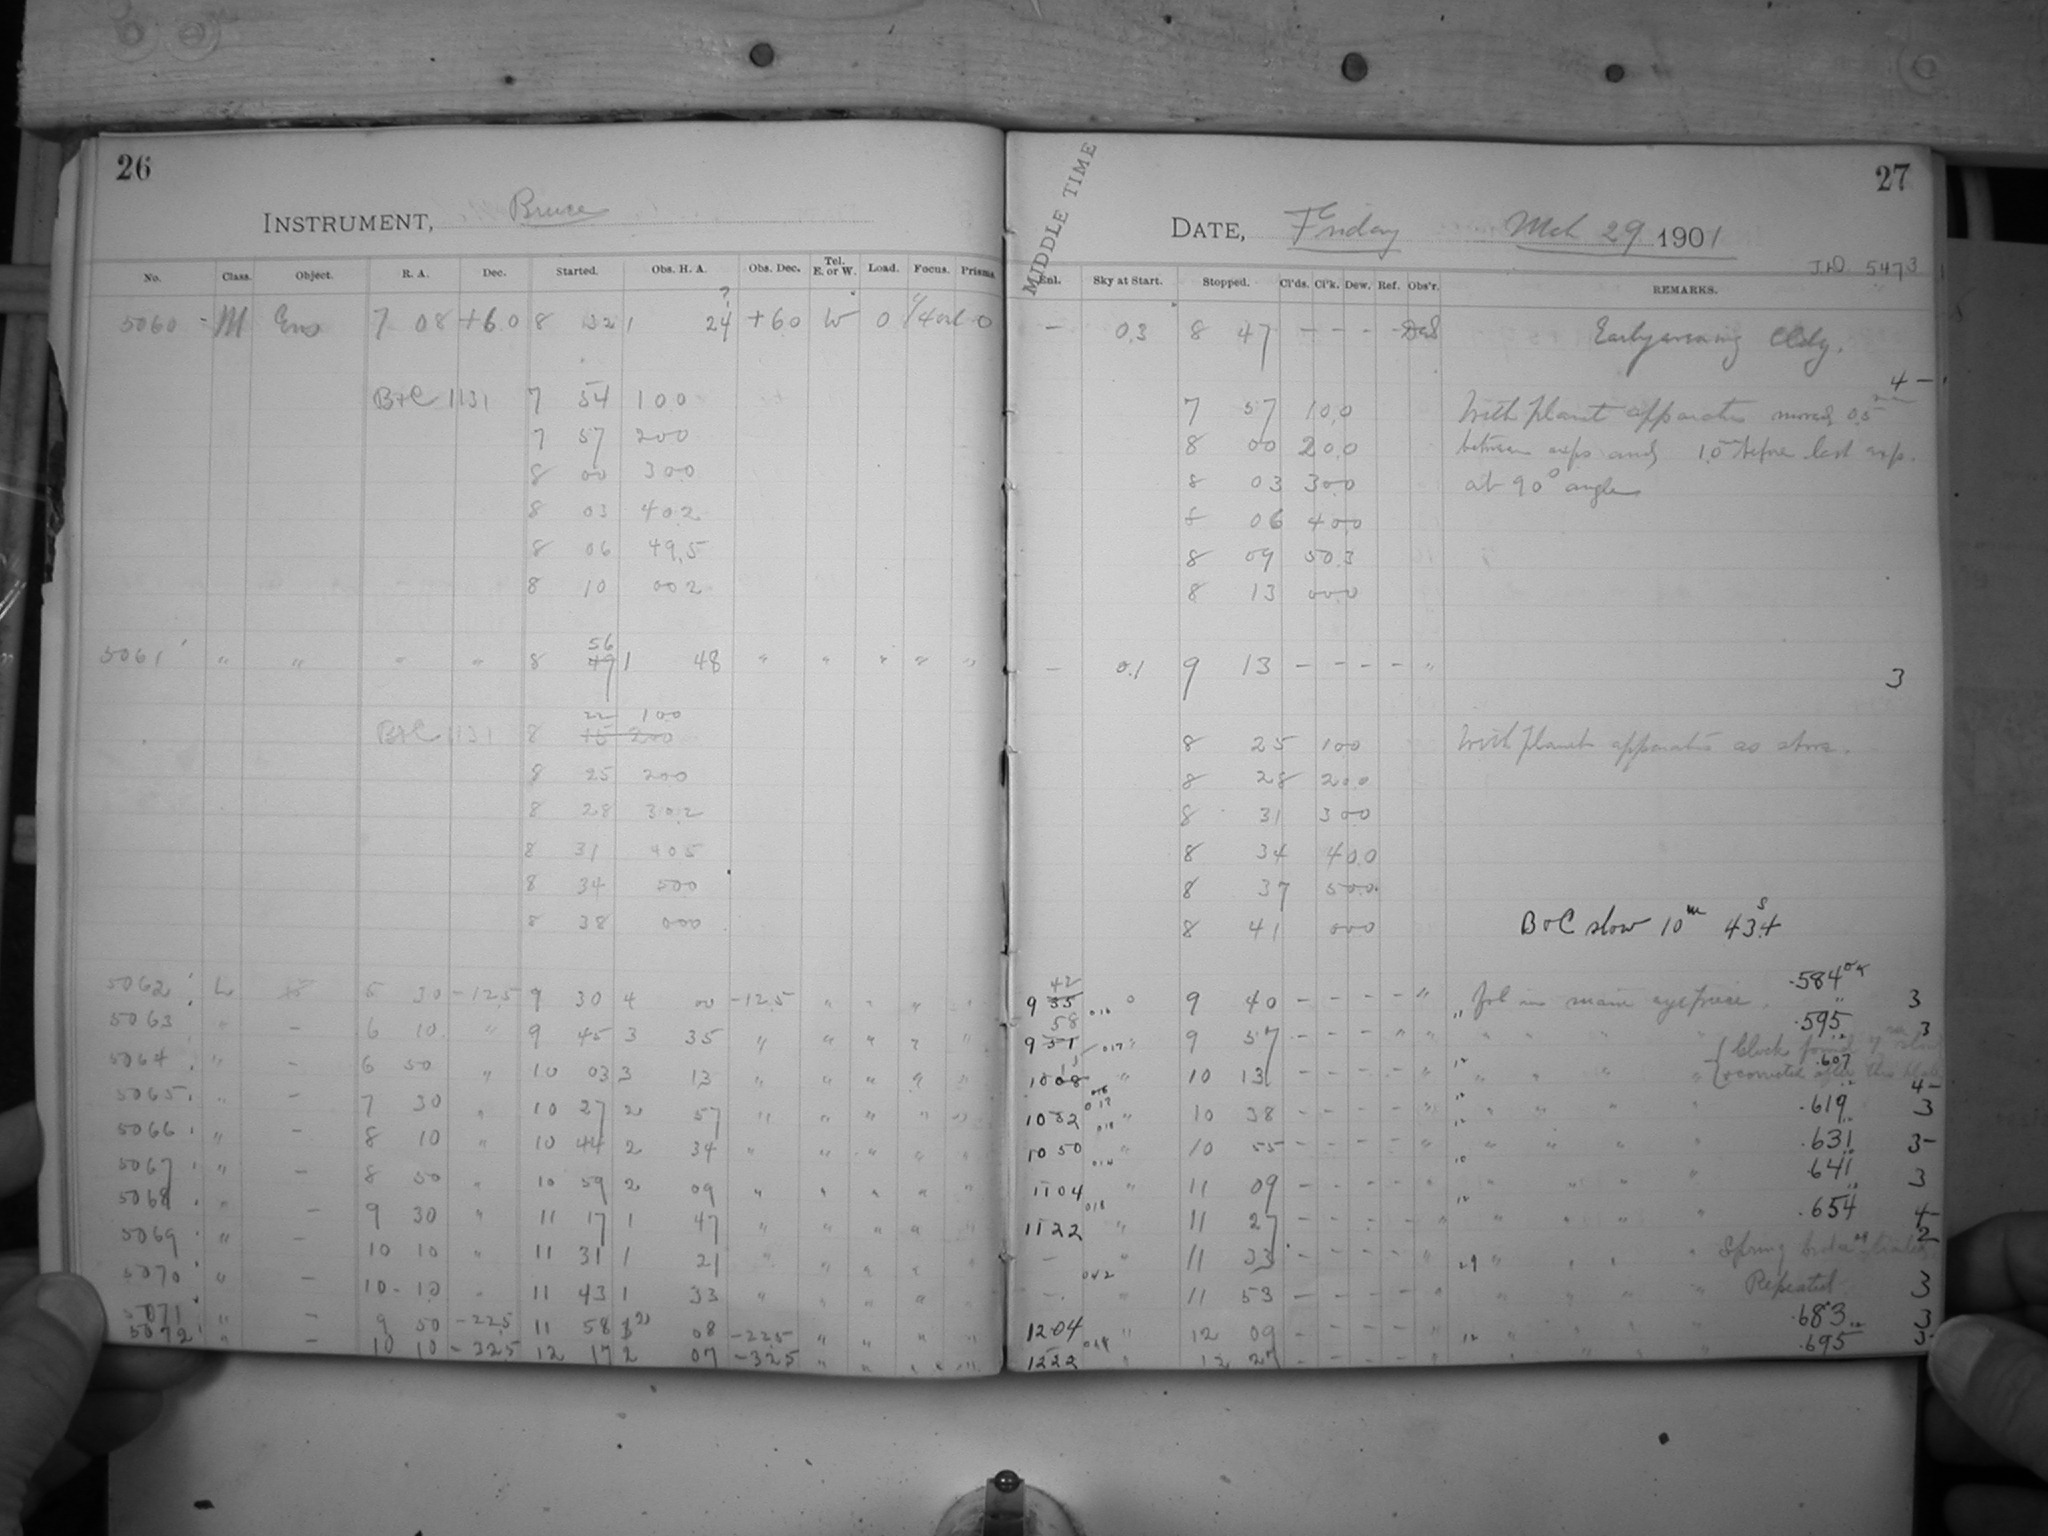 26
INSTRUMENT, Bruce
No. Class. Object. R. A. Dec. Started. Obs. H. A. Obs. Dec. Tel. E. or W. Load. Focus. Prisms.
5060 M Eros 7 08 +6.0 8 32 1 24 ? +6.0 W 0 0
B+C 1131 7 54 10.0
7 57 20.0
8 00 30.0
8 03 40.2
8 06 49.5
8 10 00.2
5061 " " " " 8 49 56 1 48 " " " " "
B+C 1131 8 15 20.0 22 10.0
8 25 20.0
8 28 30.2
8 31 40.5
8 34 50.0
8 38 00.0
5062 L 5 30 -12.5 9 30 4 00 -12.5 " " " "
5063 " - 6 10 " 9 45 3 35 " " " " "
5064 " - 6 50 " 10 03 3 13 " " " " "
5065 " - 7 30 " 10 27 2 57 " " " " "
5066 " - 8 10 " 10 44 2 34 " " " " "
5067 " 8 50 " 10 59 2 09 " " " " "
5068 " - 9 30 " 11 17 1 47 " " " " "
5069 " - 10 10 " 11 31 1 21 " " " " "
5070 " - 10 10 " 11 43 1 33 " " " " "
5071 " - 9 50 -22.5 11 58 2 08 -22.5 " " " "
5072 " - 10 10 -32.5 12 17 2 07 -32.5 " " " " "
27
MIDDLE TIME
DATE, Friday Mch 29 1901
J.D. 5473
Enl. Sky at Start. Stopped. Cl'ds. Cl'k. Dew. Ref. Obs'r. REMARKS.
- 0.3 8 47 - - - - Early evening Cldy.
4 -
7 57 10.0 With planet apparatus moved 0.5
8 00 20.0 between exps and 1.0 before last exp.
8 03 30.0 at 90° angles
8 06 40.0
8 09 50.3
8 13 00.0
- 0.1 9 13 - - - - " 3
8 25 10.0 With planet apparatus as above.
8 28 20.0
8 31 30.0
8 34 40.0
8 37 50.0
8 41 00.0 B+C slow 10m 43.4s
9 35 42 0 9 40 - - - - " in main eyepiece .584 3
9 51 58 " 9 57 - - - " " .595 3
10 08 13 " 10 13 - - - - " Clock found slow & corrected after this plate .607 4-
10 32 " 10 38 - - - - " .619 3
10 50 " 10 55 - - - - " .631 3-
11 04 " 11 09 - - - - " .641 3
11 22 " 11 27 - - - - " .654 4
- " 11 33 - - - - " Spring 2
- " 11 53 - - - - " Repeated 3
12 04 " 12 09 - - - - " .683 3
12 22 " 12 27 - - - - " .695 3